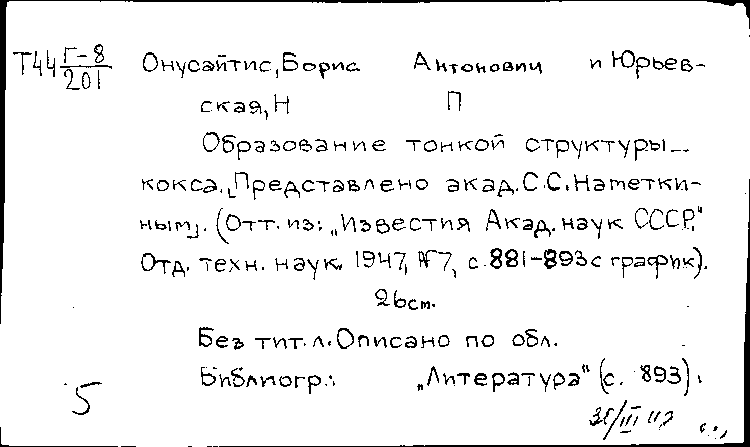 Т44 Г-8/201 Онусайтис, Борис Антонович и Юрьев-
ская, Н П
Образование тонкой структуры
кокса. [Представлено акад. С.С. Наметки-
ным]. (Отт. из: „Известия Акад. наук СССР."
Отд. техн. наук. 1947, №7, с. 881-893 с график).
26 см.
Без тит. л. Описано по обл.
Библиогр.: „Литература" (с. 893).
5